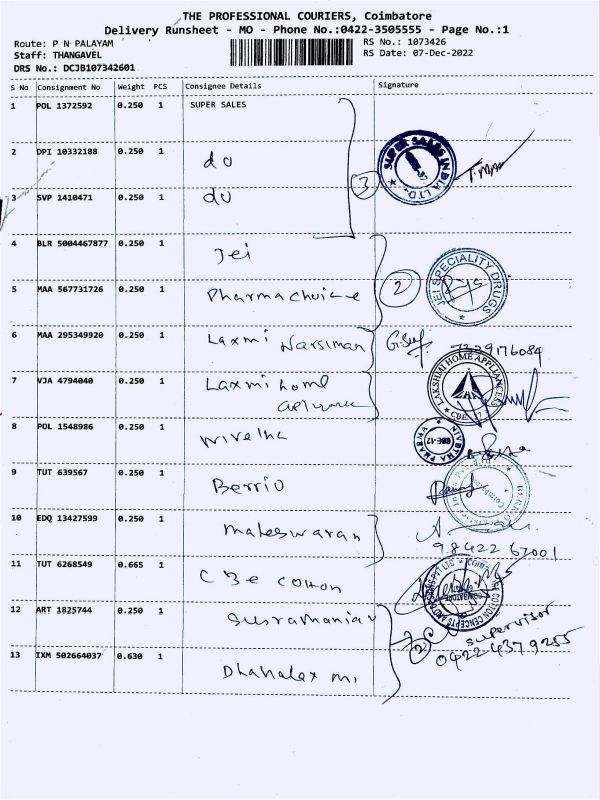 THE PROFESSIONAL COURIERS, Coimbatore
Delivery Runsheet - MO - Phone No.:0422-3505555 - Page No.:1
Route: P N PALAYAM
Staff: THANGAVEL
DRS No.: DCJB107342601
RS No.: 1073426
RS Date: 07-Dec-2022
S No Consignment No Weight PCS Consignee Details Signature
1 POL 1372592 0.250 1 SUPER SALES
2 DPI 10332188 0.250 1 do
SUPER SALES INDIA LTD.
3
3 SVP 1410471 0.250 1 do
4 BLR 5004467877 0.250 1 Jei
JEI SPECIALITY DRUGS
2
5 MAA 567731726 0.250 1 Pharmachuiche
6 MAA 295349920 0.250 1 Laxmi Narsiman
7339176084
7 VJA 4794040 0.250 1 Laxmi home
LAKSHMI HOME APPLIANCES
CBE
8 POL 1548986 0.250 1
NIVETHA PHARMA
CBE-12
9 TUT 639567 0.250 1 Berrio
10 EDQ 13427599 0.250 1 Maheswaran
98422 67001
11 TUT 6268549 0.665 1 CBe cotton
COTTON CONCEPTS
COIMBATORE
12 ART 1825744 0.250 1 Susramanian
2
supervisor
0422 4379255
13 IXM 502664037 0.630 1 Dhanalaxmi